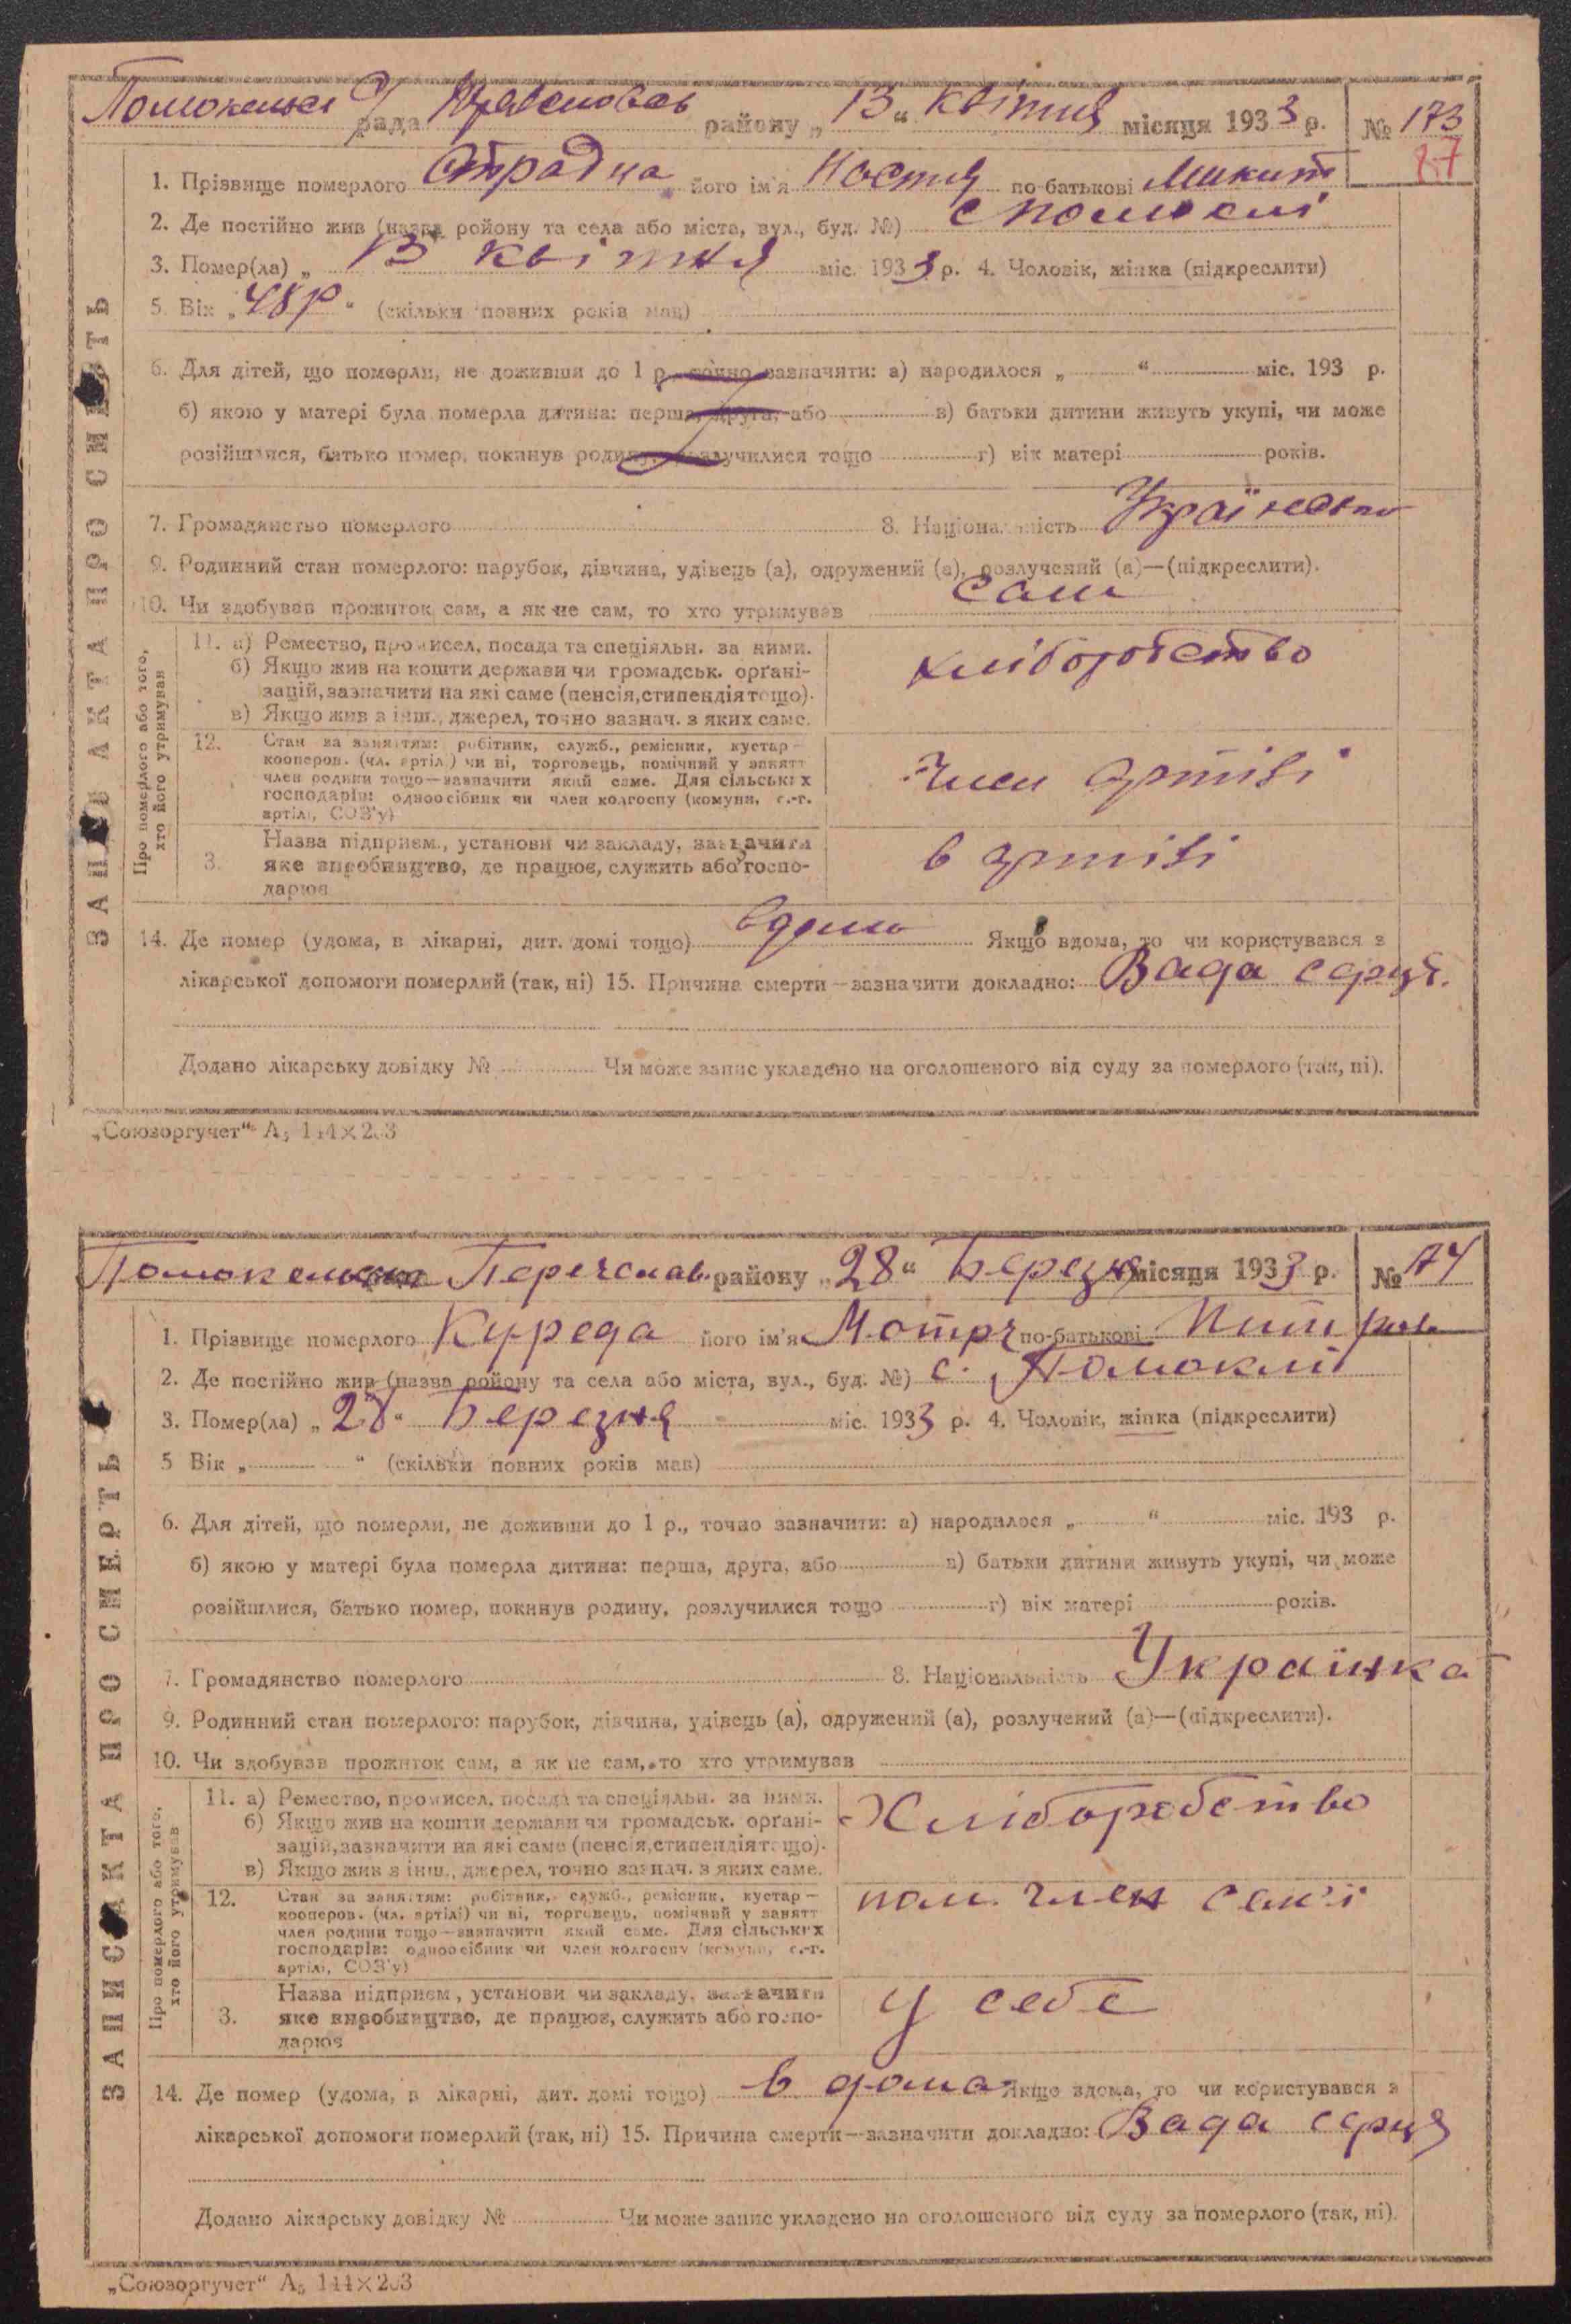 Помокельсь рада Переяслав району „13“ квітня місяця 1933 р. № 173
87
1. Прізвище померлого Отрадна його ім'я Настя по-батькові Микит
2. Де постійно жив (назва ройону та села або міста, вул., буд. №) с Помоклі
3. Помер(ла) „ 13 квітня міс. 1933 р. 4. Чоловік, жінка (підкреслити)
5. Вік „48р“ (скільки повних років мав)
6. Для дітей, що померли, не доживши до 1 р., точно зазначяти: а) народилося „ “ міс. 193 р.
б) якою у матері була померла дитина: перша, друга, або в) батьки дитини живуть укупі, чи може
розійшлися, батько помер, покинув родину, розлучилися тощо г) вік матері років.
7. Громадянство померлого 8. Національність
9. Родинний стан померлого: парубок, дівчина, удівець (а), одружений (а), розлучений (а)—(підкреслити).
10. Чи здобував прожиток сам, а як не сам, то хто утримував сам
11. а) Ремество, промисел, посада та спеціяльн. за ними.
б) Якщо жив на кошти держави чи громадськ. орґані-
зацій, зазначити на які саме (пенсія, стипендія тощо).
в) Якщо жив з інш., джерел, точно зазнач. з яких саме.
хліборобство
12. Стан за заняттям: робітник, служб., ремісник, кустар—
кооперов. (чл. артілі) чи ні, торговець, помічний у занятт
член родини тощо—зазначити який саме. Для сільських
господарів: одноосібник чи член колгоспу (комуни, с.-г.
артілі, СОЗ'у)
член артілі
3. Назва підприєм., установи чи закладу, зазначити
яке виробництво, де працює, служить або госпо-
дарює
в артілі
14. Де помер (удома, в лікарні, дит. домі тощо) вдома Якщо вдома, то чи користувався з
лікарської допомоги померлий (так, ні) 15. Причина смерти—зазначити докладно: Вада серця.
Додано лікарську довідку № Чи може запис укладено на оголошеного від суду за померлого (так, ні).
ЗАПИС АКТА ПРО СМЕРТЬ
Про померлого або того,
хто його утримував
„Союзоргучет“ А5 144×203
Помокельська Переяслав. району „28“ Березня місяця 1933 р. № 174
1. Прізвище померлого Куреда його ім'я Мотря по-батькові
2. Де постійно жив (назва ройону та села або міста, вул., буд. №) с. Помоклі
3. Помер(ла) „28“ Березня міс. 1933 р. 4. Чоловік, жінка (підкреслити)
5 Вік „ “ (скільки повних років мав)
6. Для дітей, що померли, не доживши до 1 р., точно зазначити: а) народилося „ “ міс. 193 р.
б) якою у матері була померла дитина: перша, друга, або в) батьки дитини живуть укупі, чи може
розійшлися, батько помер, покинув родину, розлучилися тощо г) вік матері років.
7. Громадянство померлого 8. Національність Українка
9. Родинний стан померлого: парубок, дівчина, удівець (а), одружений (а), розлучений (а)—(підкреслити).
10. Чи здобував прожиток сам, а як не сам, то хто утримував
11. а) Ремество, промисел, посада та спеціяльн. за ними.
б) Якщо жив на кошти держави чи громадськ. орґані-
зацій, зазначити на які саме (пенсія, стипендія тощо).
в) Якщо жив з інш., джерел, точно зазнач. з яких саме.
Хліборобство
12. Стан за заняттям: робітник, служб., ремісник, кустар—
кооперов. (чл. артілі) чи ні, торговець, помічний у занятт
член родини тощо—зазначити який саме. Для сільських
господарів: одноосібник чи член колгоспу (комуни, с.-г.
артілі, СОЗ'у)
пом. член сем'ї
3. Назва підприєм, установи чи закладу, зазначити
яке виробництво, де працює, служить або госпо-
дарює
у себе
14. Де помер (удома, в лікарні, дит. домі тощо) в дома Якщо вдома, то чи користувався з
лікарської допомоги померлий (так, ні) 15. Причина смерти—зазначити докладно: Вада серця
Додано лікарську довідку № Чи може запис укладено на оголошеного від суду за померлого (так, ні).
ЗАПИС АКТА ПРО СМЕРТЬ
Про померлого або того,
хто його утримував
„Союзоргучет“ А5 144×203